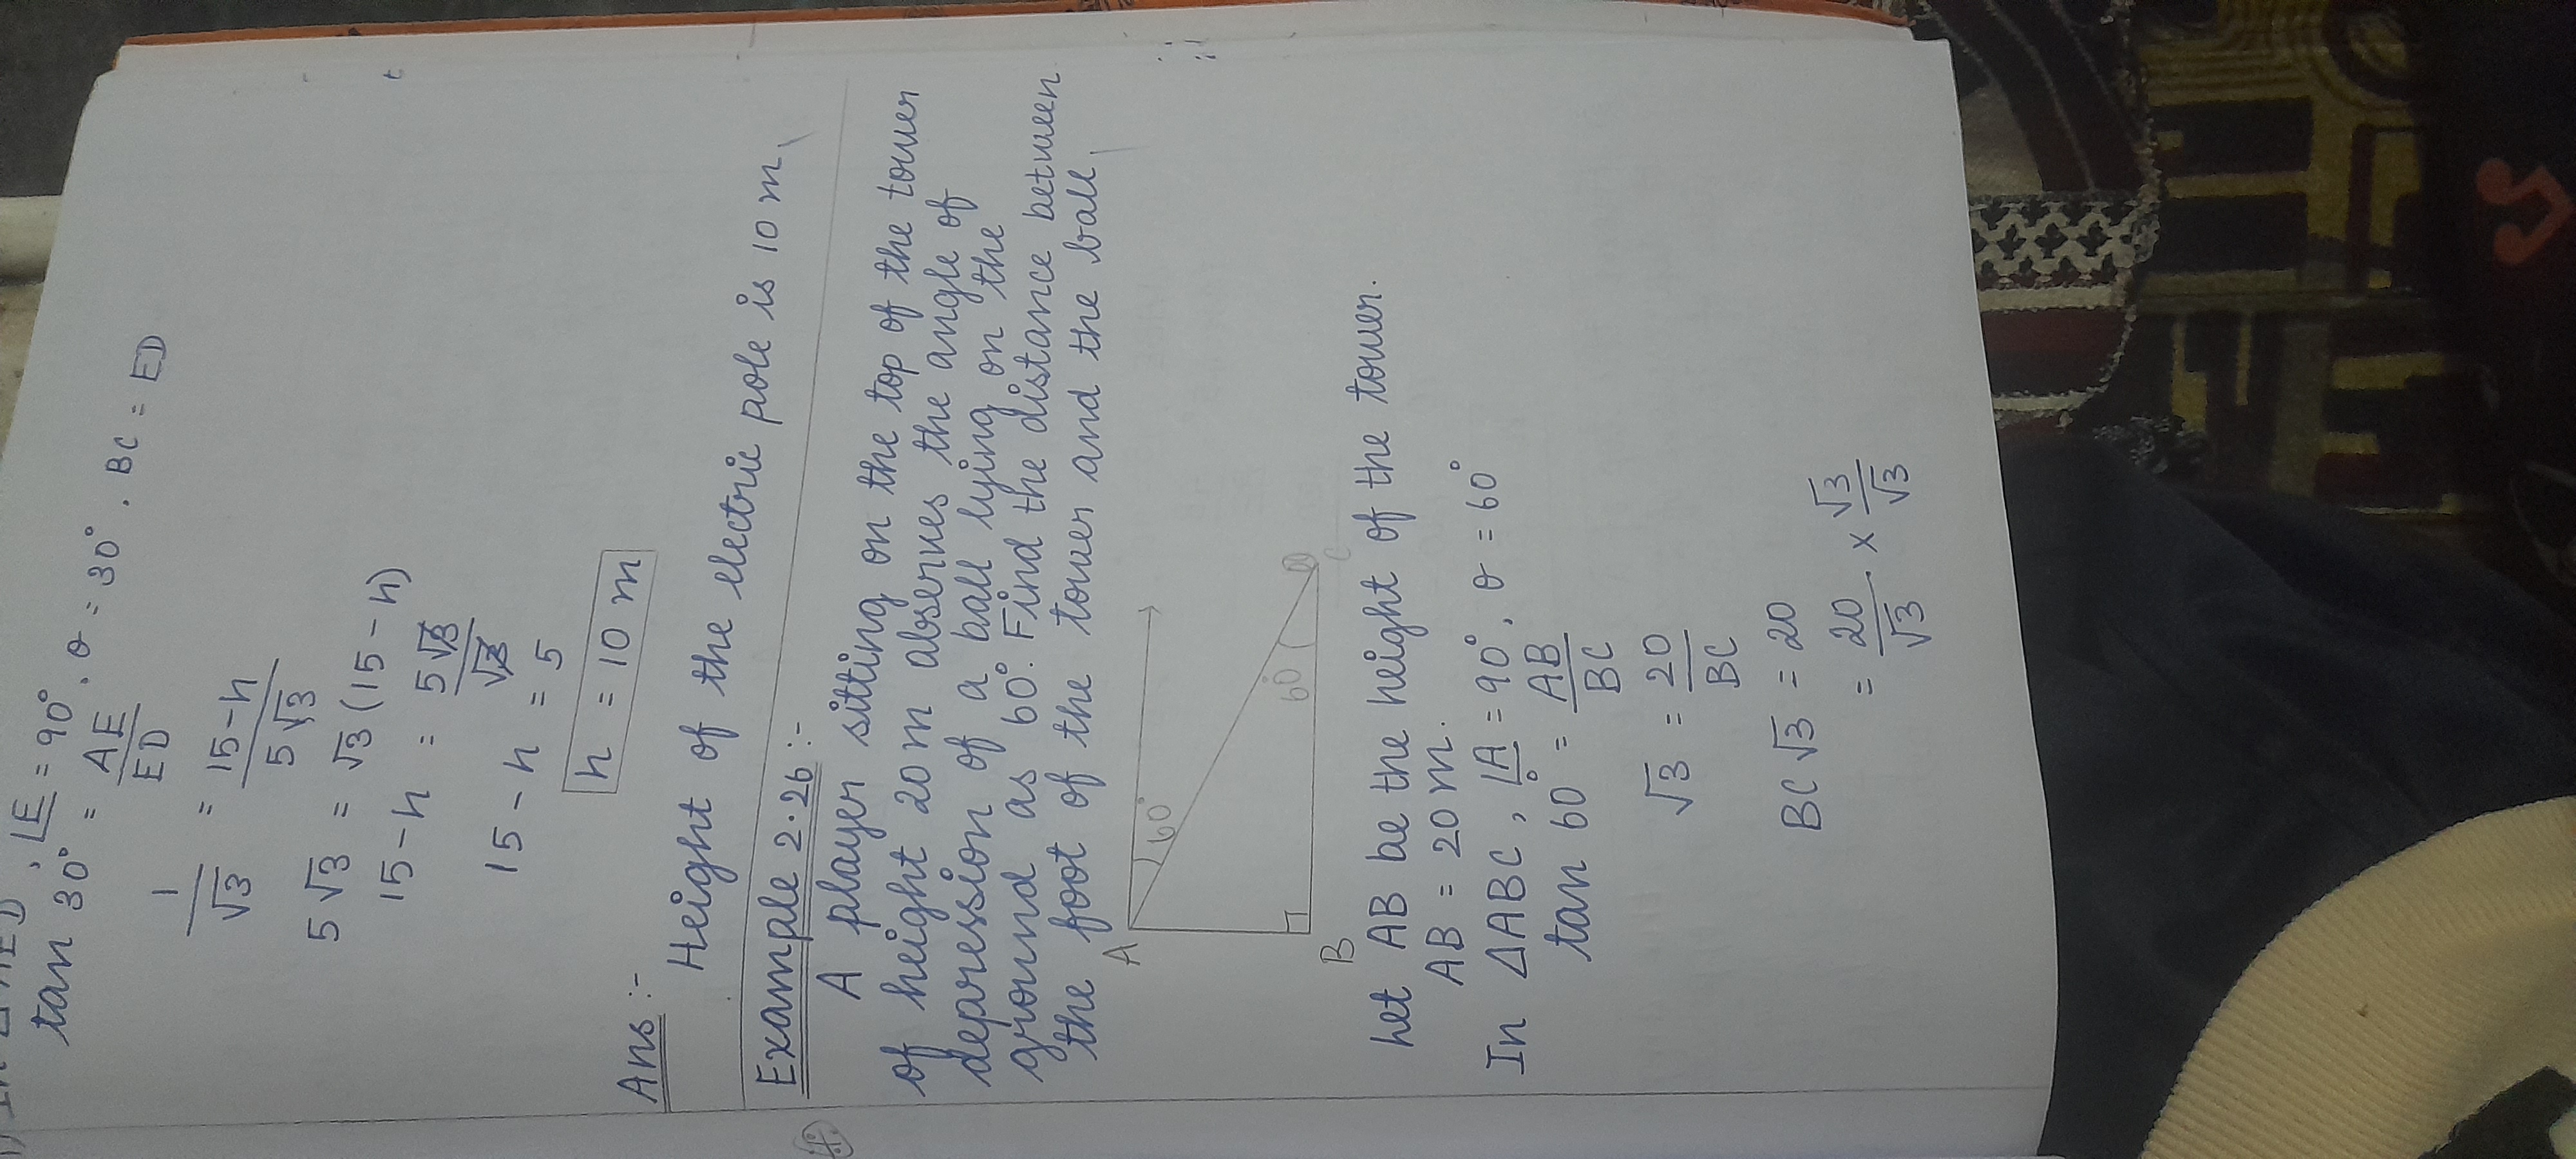 tan 30° = AE/ED , ∠E = 90°, θ = 30°, BC = ED
1/√3 = 15-h/5√3
5√3 = √3 (15-h)
15-h = 5√3/√3
15-h = 5
h = 10 m
Ans :-
Height of the electric pole is 10 m.
Example 2.26 :-
A player sitting on the top of the tower
of height 20 m observes the angle of
depression of a ball lying on the
ground as 60°. Find the distance between
the foot of the tower and the ball.
A
60°
60°
B
C
Let AB be the height of the tower.
AB = 20 m.
In ΔABC, ∠A = 90°, θ = 60°
tan 60° = AB/BC
√3 = 20/BC
BC √3 = 20
= 20/√3 × √3/√3